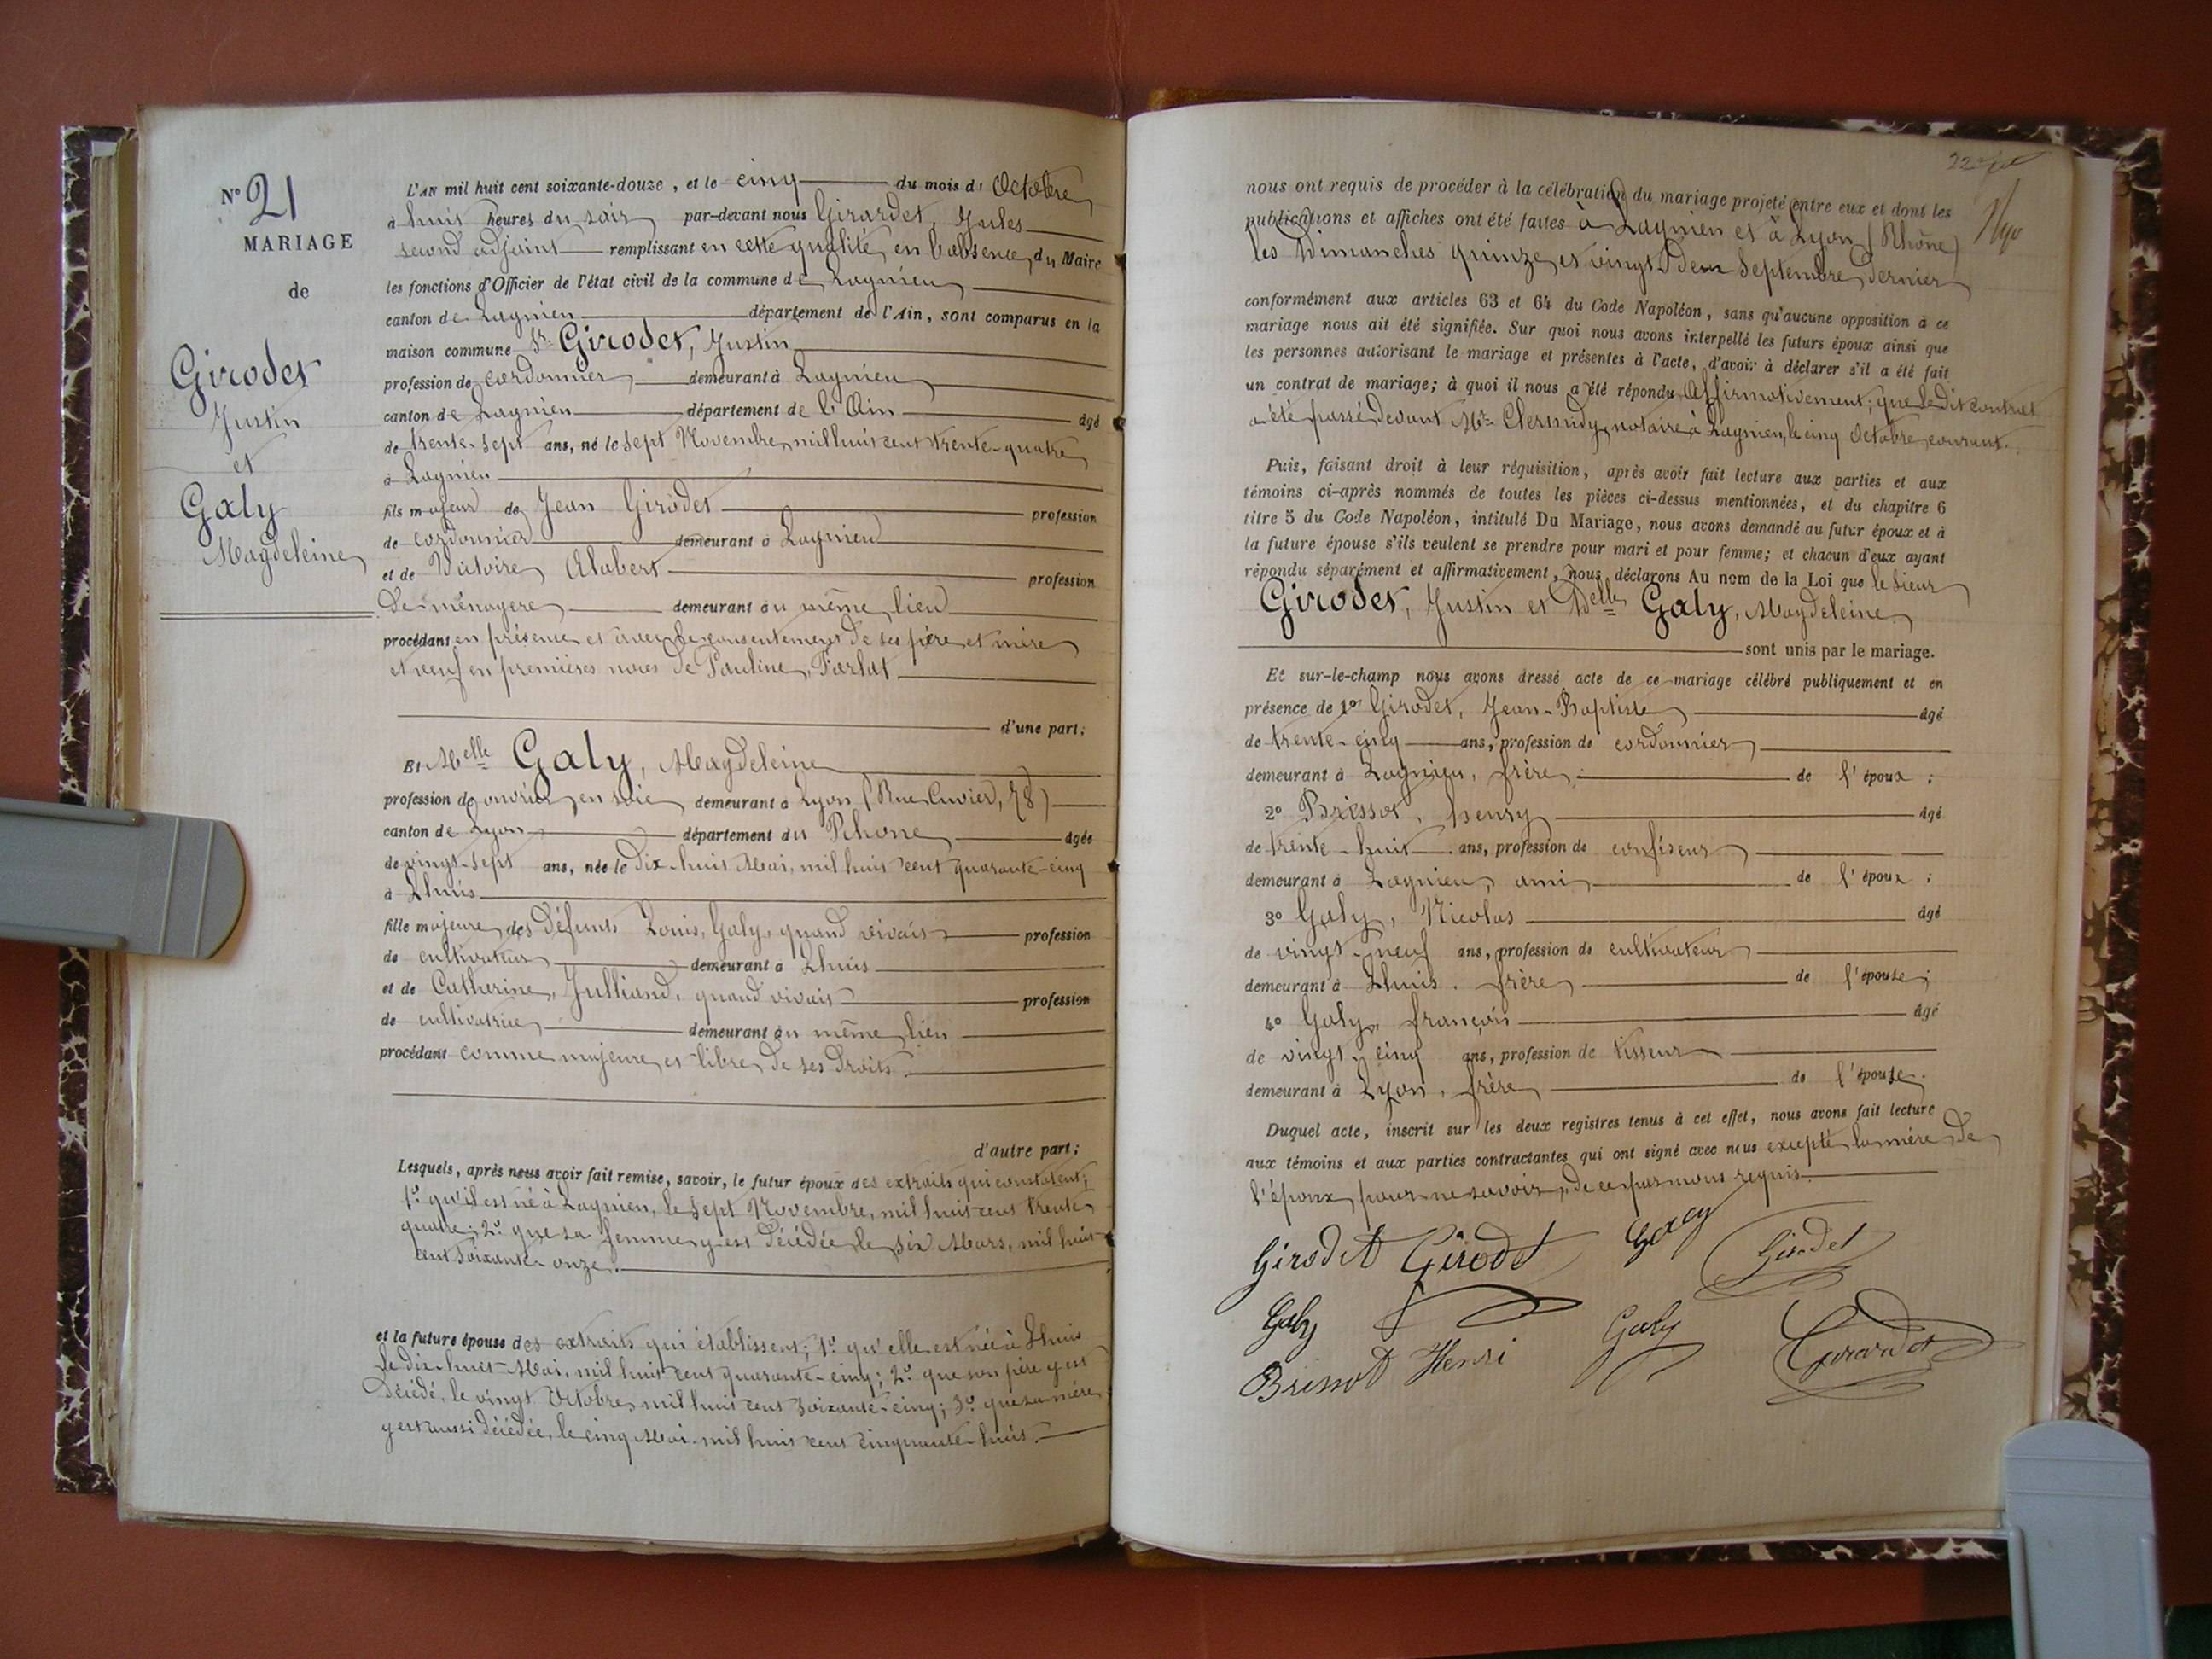 N° 21
MARIAGE
de
Girodet
Justin
et
Galy
Magdeleine
L'AN mil huit cent soixante-douze, et le cinq du mois d' Octobre
à huit heures du soir par-devant nous Girardet, Jules
second adjoint remplissant en cette qualité, en l'absence du Maire
les fonctions d'Officier de l'état civil de la commune de Lagnieu
canton de Lagnieu département de l'Ain, sont comparus en la
maison commune Sr Girodet, Justin
profession de cordonnier demeurant à Lagnieu
canton de Lagnieu département de l'Ain âgé
de trente-sept ans, né le sept Novembre, mil huit cent trente-quatre
à Lagnieu
fils majeur de Jean Girodet profession
de cordonnier demeurant à Lagnieu
et de Victoire Alabert profession
de ménagère demeurant au même lieu
procédant en présence et avec le consentement de ses père et mère
et veuf en premières noces de Pauline, Farlat
d'une part;
Et Melle Galy, Magdeleine
profession de ouvrier en soie demeurant à Lyon (Rue Cuvier, 78)
canton de Lyon département du Rhône âgée
de vingt-sept ans, née le dix-huit Mai, mil huit cent quarante-cinq
à Lhuis
fille majeure des défunts Louis, Galy, quand vivait profession
de cultivateur demeurant à Lhuis
et de Catherine, Julliand, quand vivait profession
de cultivatrice demeurant au même lieu
procédant comme majeure et libre de ses droits.
d'autre part;
Lesquels, après nous avoir fait remise, savoir, le futur époux des extraits qui constatent;
1° qu'il est né à Lagnieu, le sept Novembre, mil huit cent trente
quatre; 2° que sa femme y est décédée, le six Mars, mil huit
cent soixante-onze.
et la future épouse des extraits qui établissent; 1° qu'elle est née à Lhuis
le dix-huit Mai, mil huit cent quarante-cinq; 2° que son père y est
décédé, le vingt Octobre, mil huit cent soixante-cinq; 3° que sa mère
y est aussi décédée, le cinq Mai mil huit cent cinquante-huit.
nous ont requis de procéder à la célébration du mariage projeté entre eux et dont les
publications et affiches ont été faites à Lagnieu et à Lyon (Rhône)
les Dimanches quinze et vingt deux Septembre dernier
conformément aux articles 63 et 64 du Code Napoléon, sans qu'aucune opposition à ce
mariage nous ait été signifiée. Sur quoi nous avons interpellé les futurs époux ainsi que
les personnes autorisant le mariage et présentes à l'acte, d'avoir à déclarer s'il a été fait
un contrat de mariage; à quoi il nous a été répondu Affirmativement; que le dit contrat
a été passé devant Me notaire à Lagnieu, le cinq Octobre, courant.
Puis, faisant droit à leur réquisition, après avoir fait lecture aux parties et aux
témoins ci-après nommés de toutes les pièces ci-dessus mentionnées, et du chapitre 6
titre 5 du Code Napoléon, intitulé Du Mariage, nous avons demandé au futur époux et à
la future épouse s'ils veulent se prendre pour mari et pour femme; et chacun d'eux ayant
répondu séparément et affirmativement, nous déclarons Au nom de la Loi que le sieur
Girodet, Justin et Delle Galy, Magdeleine
sont unis par le mariage.
Et sur-le-champ nous avons dressé acte de ce mariage célébré publiquement et en
présence de 1° Girodet, Jean-Baptiste âgé
de trente-cinq ans, profession de cordonnier
demeurant à Lagnieu, frère de l'époux;
2° Brissot, henry âgé
de trente-huit ans, profession de confiseur
demeurant à Lagnieu, ami de l'époux;
3° Galy, Nicolas âgé
de vingt-neuf ans, profession de cultivateur
demeurant à Lhuis. frère de l'épouse;
4° Galy, françois âgé
de vingt-cinq ans, profession de tisseur
demeurant à Lyon, frère de l'épouse.
Duquel acte, inscrit sur les deux registres tenus à cet effet, nous avons fait lecture
aux témoins et aux parties contractantes qui ont signé avec nous excepté la mère de
l'époux, pour ne savoir, de ce par nous requis.
Girodet Girodet Galy Girodet
Galy Galy Girardet
Brissot Henri